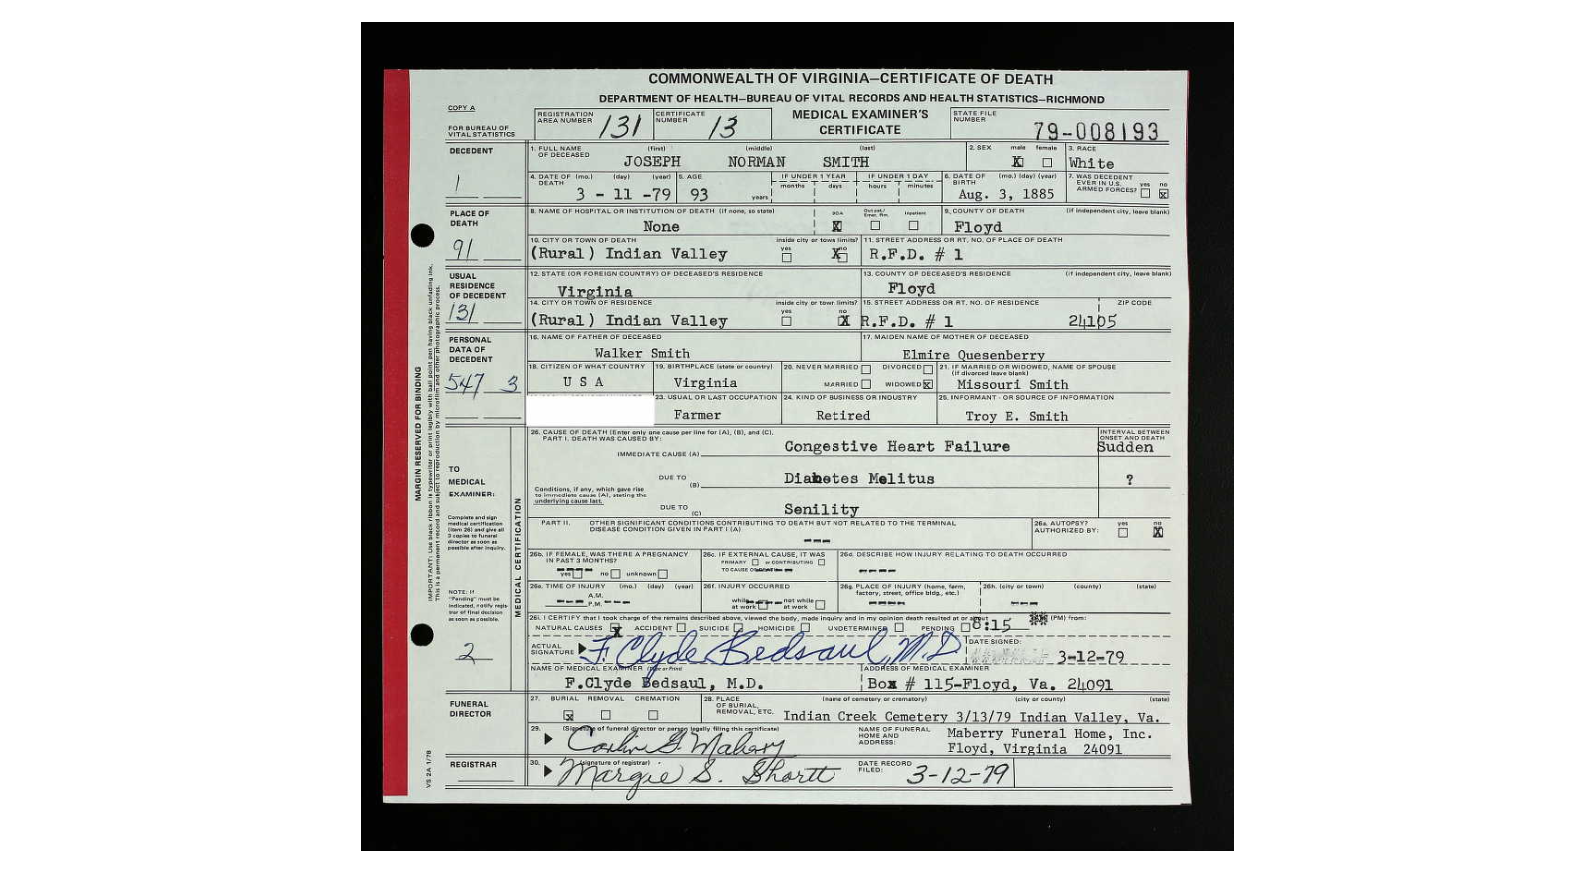 COMMONWEALTH OF VIRGINIA—CERTIFICATE OF DEATH
DEPARTMENT OF HEALTH—BUREAU OF VITAL RECORDS AND HEALTH STATISTICS—RICHMOND
COPY A
FOR BUREAU OF VITAL STATISTICS
REGISTRATION AREA NUMBER 131
CERTIFICATE NUMBER 13
MEDICAL EXAMINER'S CERTIFICATE
STATE FILE NUMBER 79-008193
DECEDENT
1
1. FULL NAME OF DECEASED (first) (middle) (last)
JOSEPH NORMAN SMITH
2. SEX male X female
3. RACE White
4. DATE OF DEATH (mo.) (day) (year) 3 - 11 -79
5. AGE 93 years
IF UNDER 1 YEAR months days
IF UNDER 1 DAY hours minutes
6. DATE OF BIRTH (mo.) (day) (year) Aug. 3, 1885
7. WAS DECEDENT EVER IN U.S. ARMED FORCES? yes no X
PLACE OF DEATH
91
8. NAME OF HOSPITAL OR INSTITUTION OF DEATH (if none, so state) None
DOA X Out pat./Emer. Rm. Inpatient
9. COUNTY OF DEATH (if independent city, leave blank) Floyd
10. CITY OR TOWN OF DEATH inside city or town limits? yes no X
(Rural) Indian Valley
11. STREET ADDRESS OR RT. NO. OF PLACE OF DEATH
R.F.D. # 1
USUAL RESIDENCE OF DECEDENT
131
12. STATE (OR FOREIGN COUNTRY) OF DECEASED'S RESIDENCE
Virginia
13. COUNTY OF DECEASED'S RESIDENCE (if independent city, leave blank)
Floyd
14. CITY OR TOWN OF RESIDENCE inside city or town limits? yes no X
(Rural) Indian Valley
15. STREET ADDRESS OR RT. NO. OF RESIDENCE ZIP CODE
R.F.D. # 1 24105
PERSONAL DATA OF DECEDENT
547 3
16. NAME OF FATHER OF DECEASED
Walker Smith
17. MAIDEN NAME OF MOTHER OF DECEASED
Elmire Quesenberry
18. CITIZEN OF WHAT COUNTRY
U S A
19. BIRTHPLACE (state or country)
Virginia
20. NEVER MARRIED DIVORCED
MARRIED WIDOWED X
21. IF MARRIED OR WIDOWED, NAME OF SPOUSE (if divorced leave blank)
Missouri Smith
23. USUAL OR LAST OCCUPATION
Farmer
24. KIND OF BUSINESS OR INDUSTRY
Retired
25. INFORMANT - OR SOURCE OF INFORMATION
Troy E. Smith
MARGIN RESERVED FOR BINDING
MEDICAL CERTIFICATION
TO MEDICAL EXAMINER:
Complete and sign medical certification (item 26) and give all 3 copies to funeral director as soon as possible after inquiry.
NOTE: If "Pending" must be indicated, notify registrar of final decision as soon as possible.
2
26. CAUSE OF DEATH (Enter only one cause per line for (A), (B), and (C).
PART I. DEATH WAS CAUSED BY:
INTERVAL BETWEEN ONSET AND DEATH
IMMEDIATE CAUSE (A) Congestive Heart Failure Sudden
Conditions, if any, which gave rise to immediate cause (A), stating the underlying cause last.
DUE TO (B) Diabetes Melitus ?
DUE TO (C) Senility
PART II. OTHER SIGNIFICANT CONDITIONS CONTRIBUTING TO DEATH BUT NOT RELATED TO THE TERMINAL DISEASE CONDITION GIVEN IN PART I (A)
---
26a. AUTOPSY? AUTHORIZED BY: yes no X
26b. IF FEMALE, WAS THERE A PREGNANCY IN PAST 3 MONTHS?
yes no unknown
26c. IF EXTERNAL CAUSE, IT WAS
PRIMARY or CONTRIBUTING
TO CAUSE OF DEATH
26d. DESCRIBE HOW INJURY RELATING TO DEATH OCCURRED
----
26e. TIME OF INJURY (mo.) (day) (year)
A.M.
P.M.
26f. INJURY OCCURRED
while at work not while at work
26g. PLACE OF INJURY (home, farm, factory, street, office bldg., etc.)
----
26h. (city or town) (county) (state)
---
26i. I CERTIFY that I took charge of the remains described above, viewed the body, made inquiry and in my opinion death resulted at or about 8:15 (PM) from:
NATURAL CAUSES X ACCIDENT SUICIDE HOMICIDE UNDETERMINED PENDING
ACTUAL SIGNATURE F. Clyde Bedsaul, M.D.
DATE SIGNED: 3-12-79
NAME OF MEDICAL EXAMINER (Type or Print)
F.Clyde Bedsaul, M.D.
ADDRESS OF MEDICAL EXAMINER
Box # 115-Floyd, Va. 24091
FUNERAL DIRECTOR
27. BURIAL REMOVAL CREMATION
X
28. PLACE OF BURIAL, REMOVAL, ETC. (name of cemetery or crematory) (city or county) (state)
Indian Creek Cemetery 3/13/79 Indian Valley, Va.
29. (Signature of funeral director or person legally filing this certificate)
NAME OF FUNERAL HOME AND ADDRESS:
Maberry Funeral Home, Inc.
Floyd, Virginia 24091
REGISTRAR
30. (signature of registrar)
Margie S. Shortt
DATE RECORD FILED: 3-12-79
VS 2A 1/78